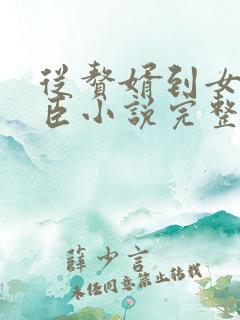 從贅婿到女
臣小說完整
薛少言
未經同意禁止轉載